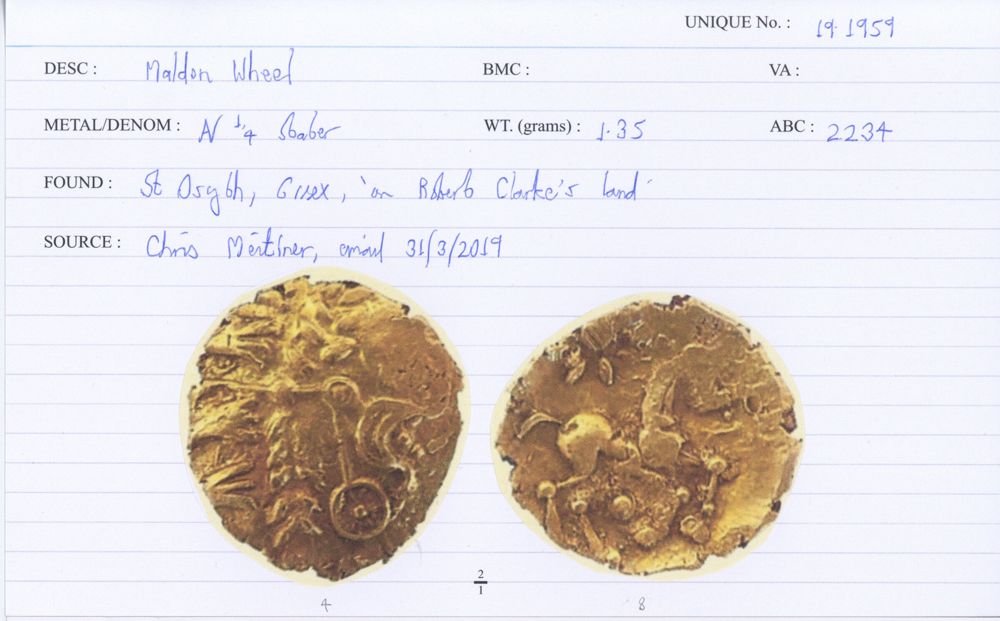 UNIQUE No. : 19.1959
DESC : Maldon Wheel BMC : VA :
METAL/DENOM : N 1/4 Stater WT. (grams) : 1.35 ABC : 2234
FOUND : St Osyth, Essex, 'on Robert Clarke's land'
SOURCE : Chris Mortimer, email 31/3/2019
2/1
4 8